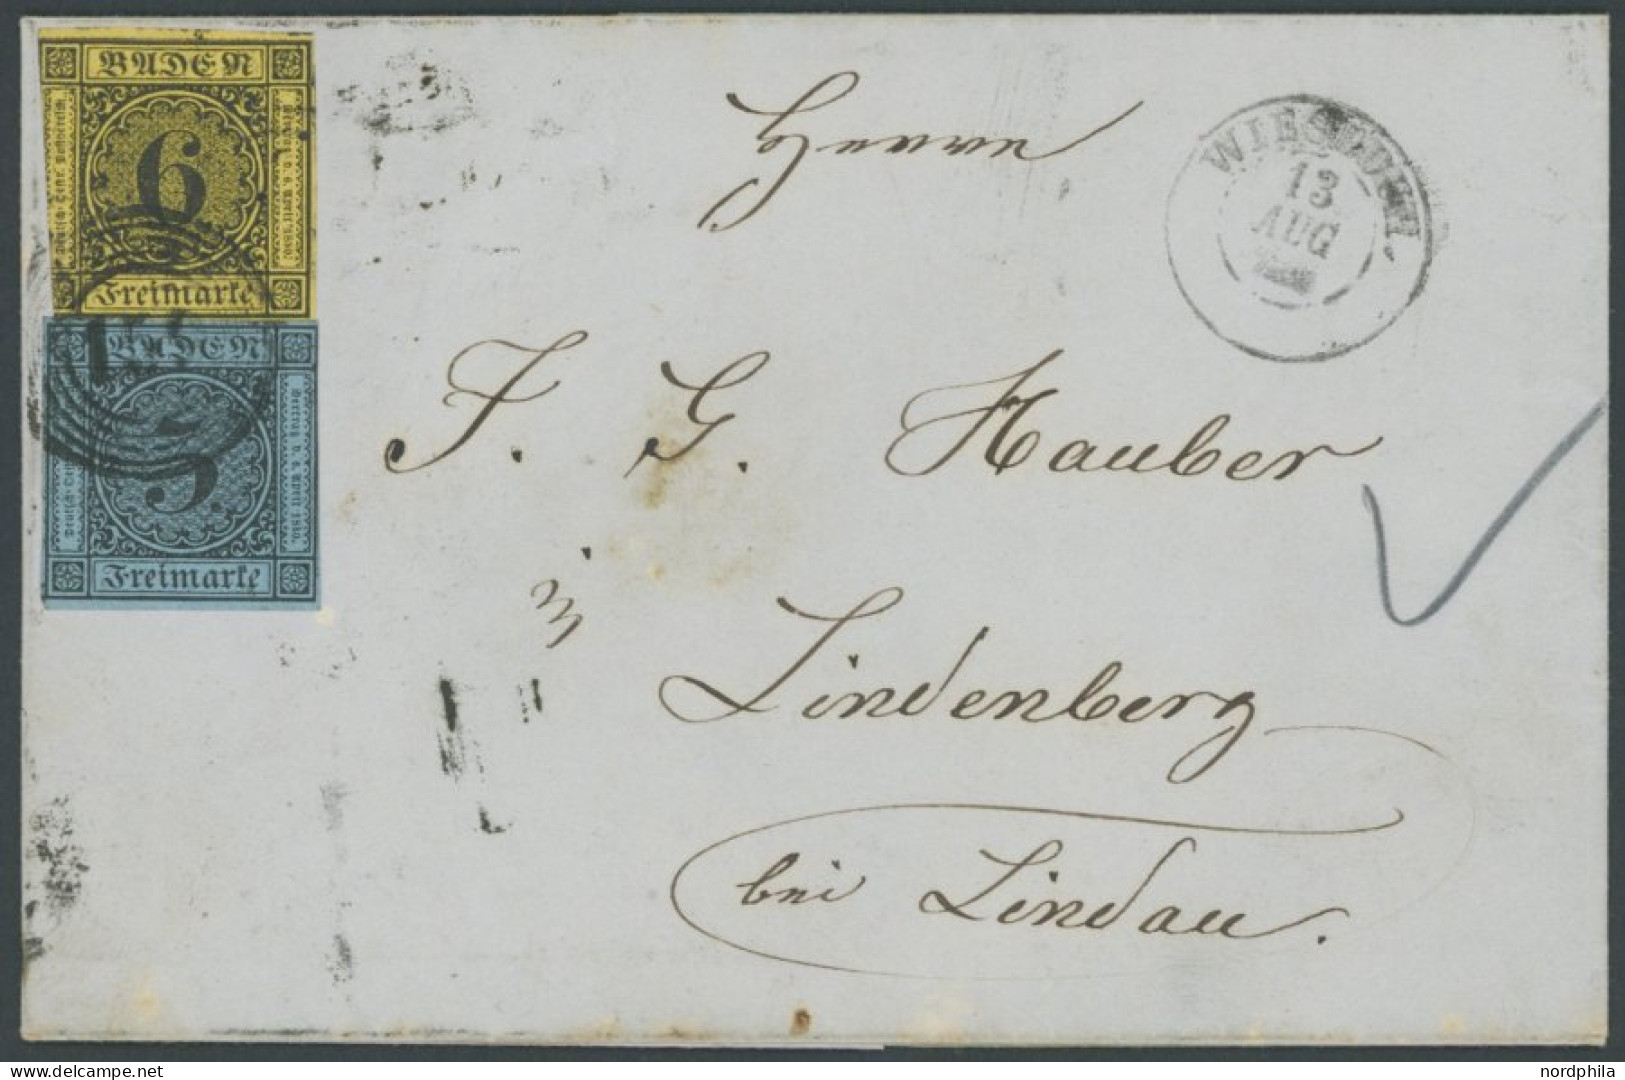 BADEN
6
Freimarke
BADEN
3.
Freimarke
WIESLOCH.
13
AUG
Herrn
J. G. Hauber
in
Lindenberg
bei Lindau.
www.nordphila.com